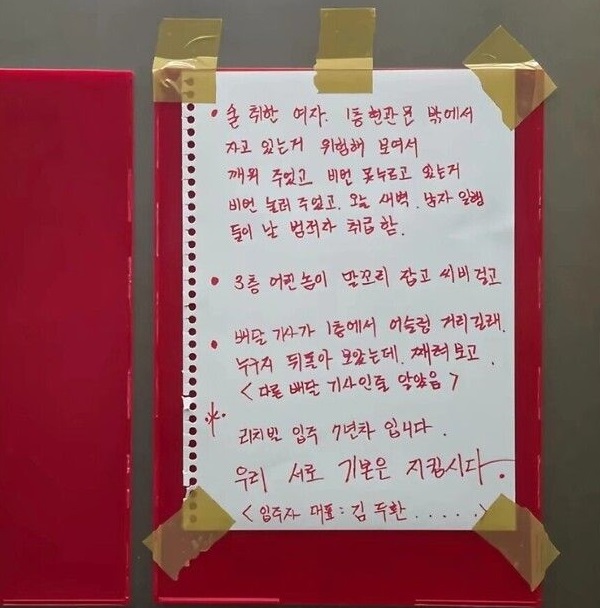 • 술 취한 여자. 1층 현관문 밖에서
자고 있는거 위험해 보여서
깨워 주었고 비번 못누르고 있는거
비번 눌러 주었고. 오늘 새벽. 남자 일행
들이 날 범죄자 취급함.
• 3층 어린놈이 말꼬리 잡고 씨비 걸고
• 배달 기사가 1층에서 어슬렁 거리길래.
누구지 뒤돌아 보았는데. 째려보고.
< 다른 배달 기사인줄 알았음 >
* 리치빌 입주 7년차 입니다.
우리 서로 기본은 지킵시다.
< 입주자 대표 : 김두환 ..... >